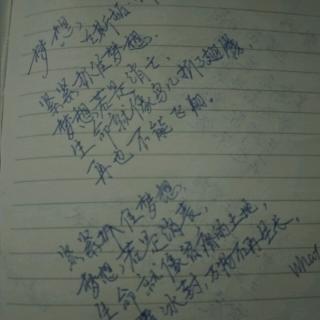 梦想,
紧紧抓住梦想,
梦想若是消亡,
生命就像鸟儿折了翅膀,
再也不能飞翔。
紧紧抓住梦想,
梦想若是消丧,
生命就像贫瘠的土地,
冰封,万物不再生长。